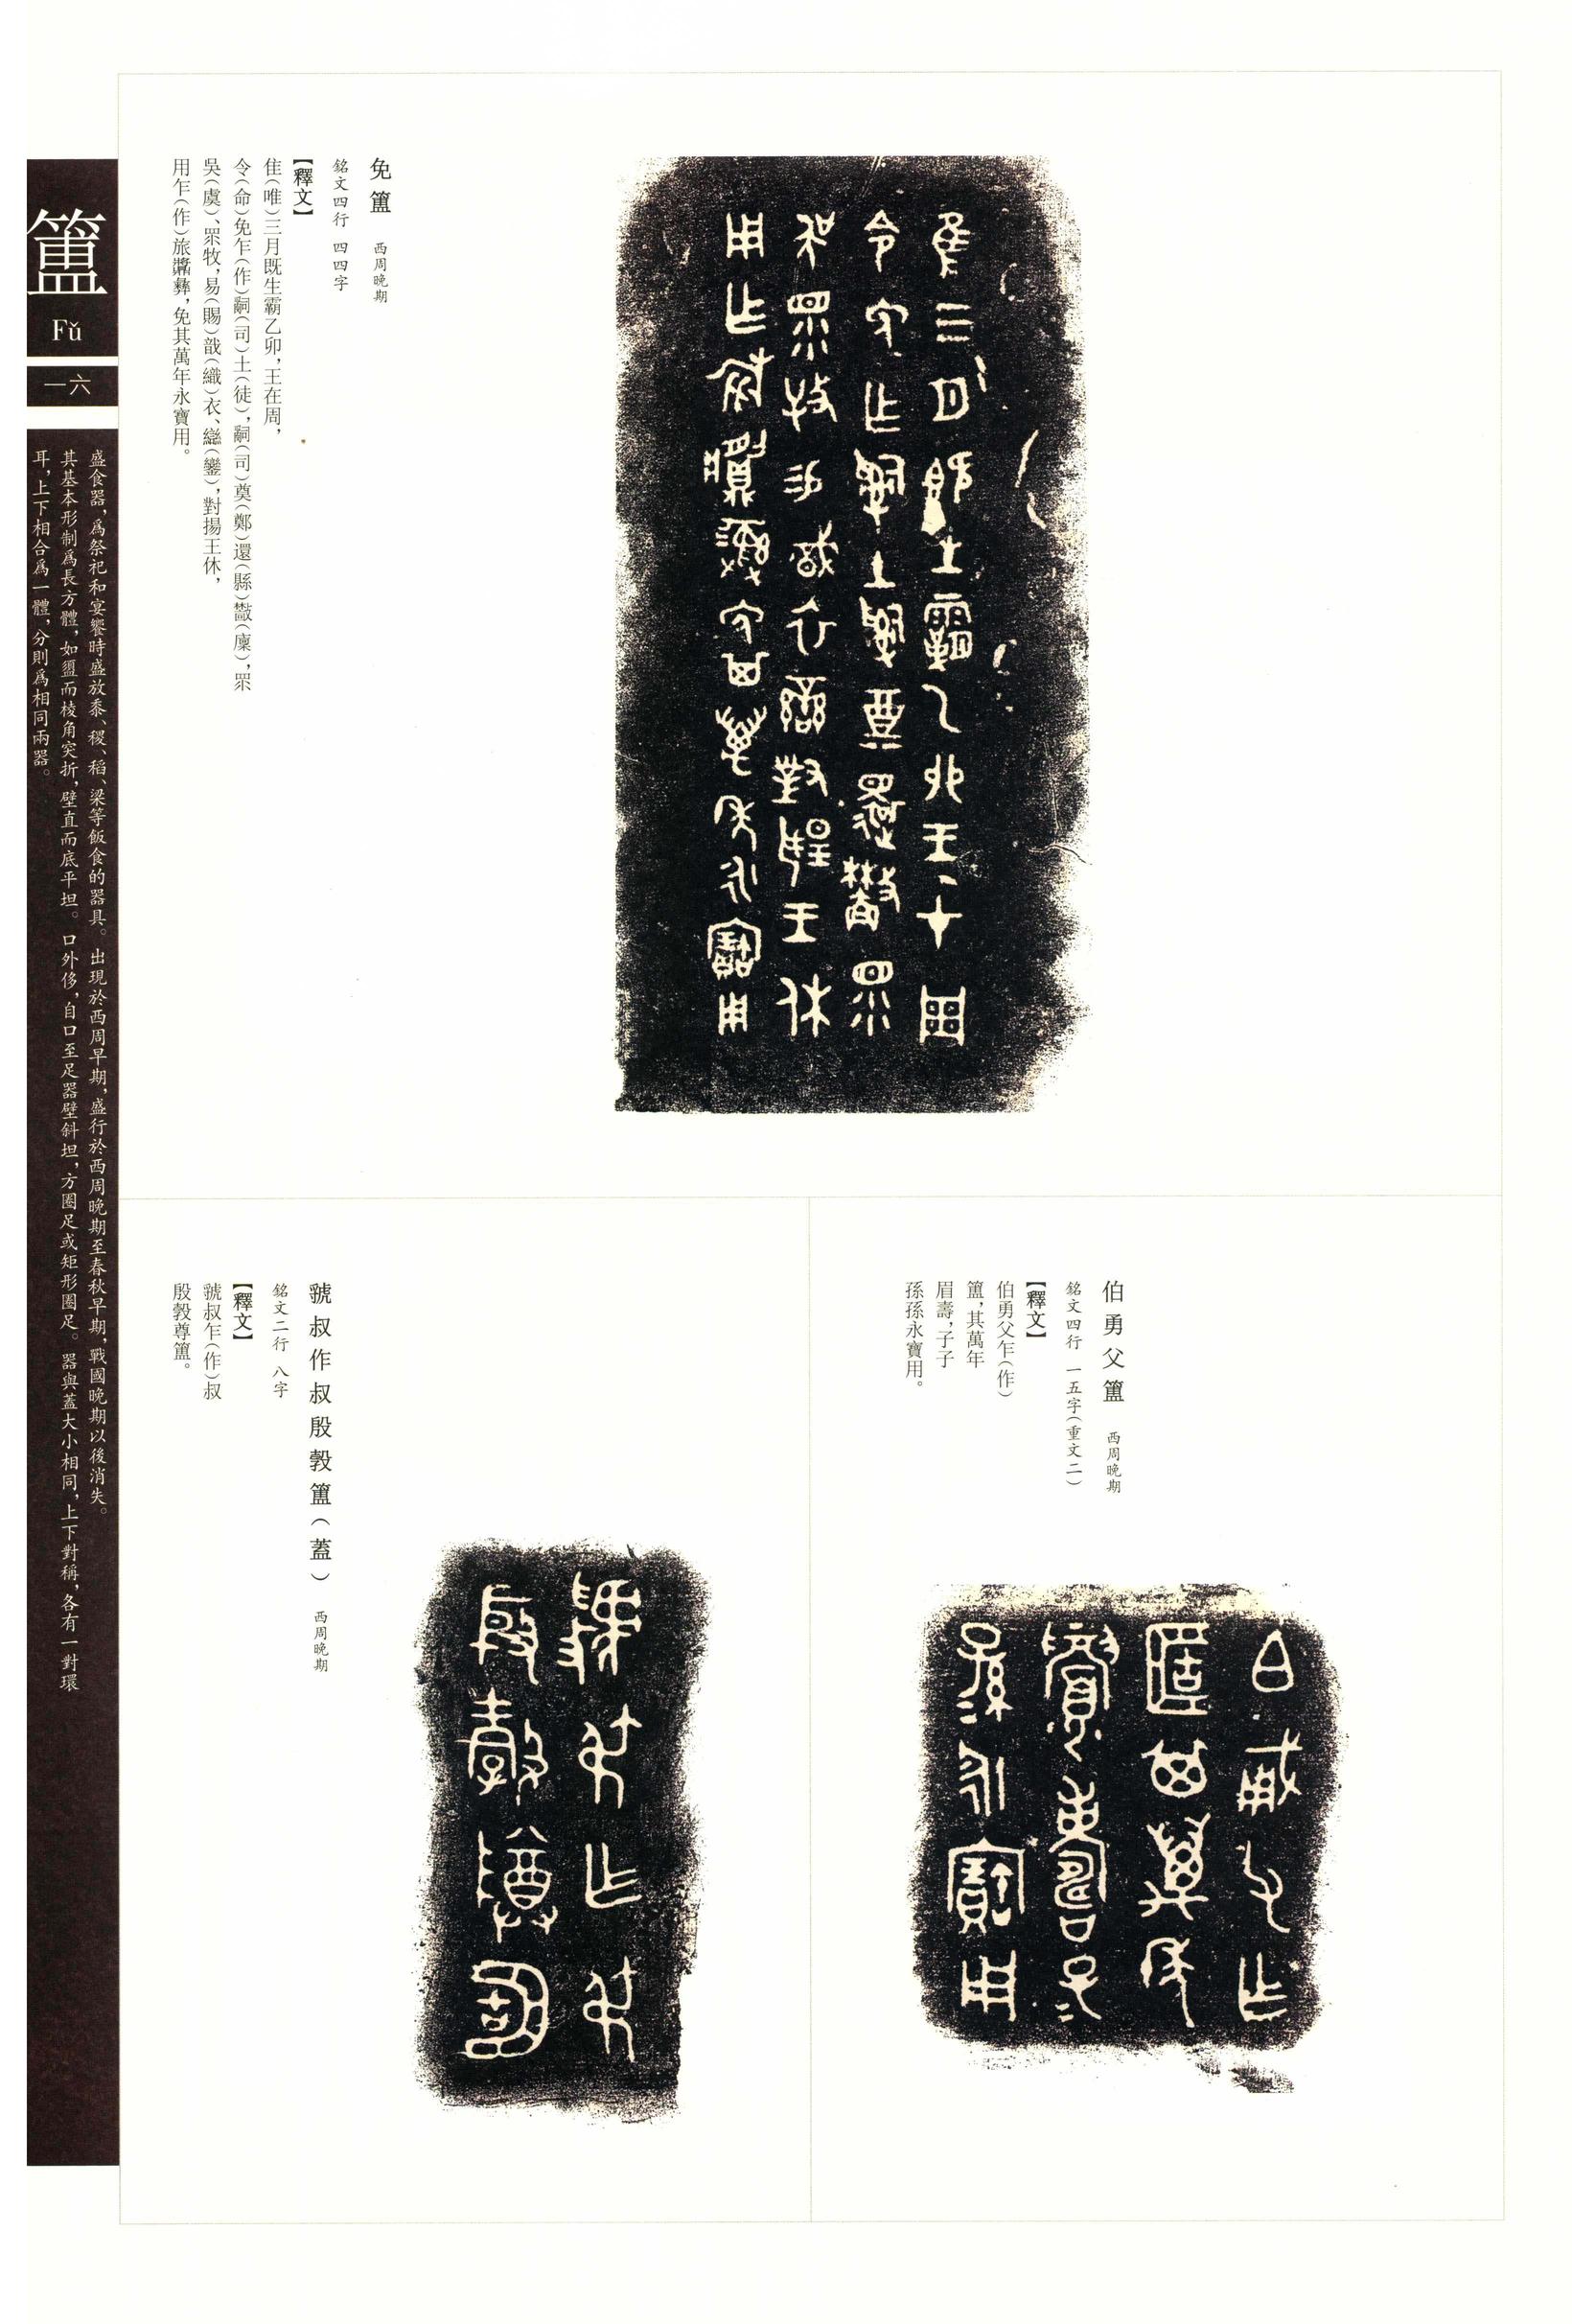 簠
Fǔ
一六
盛食器，爲祭祀和宴饗時盛放黍、稷、稻、梁等飯食的器具。出現於西周早期，盛行於西周晚期至春秋早期，戰國晚期以後消失。
其基本形制爲長方體，如盨而棱角突折，壁直而底平坦。口外侈，自口至足器壁斜坦，方圈足或矩形圈足。器與蓋大小相同，上下對稱，各有一對環
耳，上下相合爲一體，分則爲相同兩器。
免簠 西周晚期
銘文四行 四四字
【釋文】
隹（唯）三月既生霸乙卯，王在周，
令（命）免乍（作）嗣（司）土（徒），嗣（司）奠（鄭）還（縣）（廩），眔
吳（虞）、眔牧，易（賜）戠（織）衣、䜌（鑾），對揚王休，
用乍（作）旅彝，免其萬年永寶用。
伯勇父簠 西周晚期
銘文四行 一五字（重文二）
【釋文】
伯勇父乍（作）
簠，其萬年
眉壽，子子
孫孫永寶用。
虢叔作叔殷㝅簠（蓋） 西周晚期
銘文二行 八字
【釋文】
虢叔乍（作）叔
殷㝅尊簠。